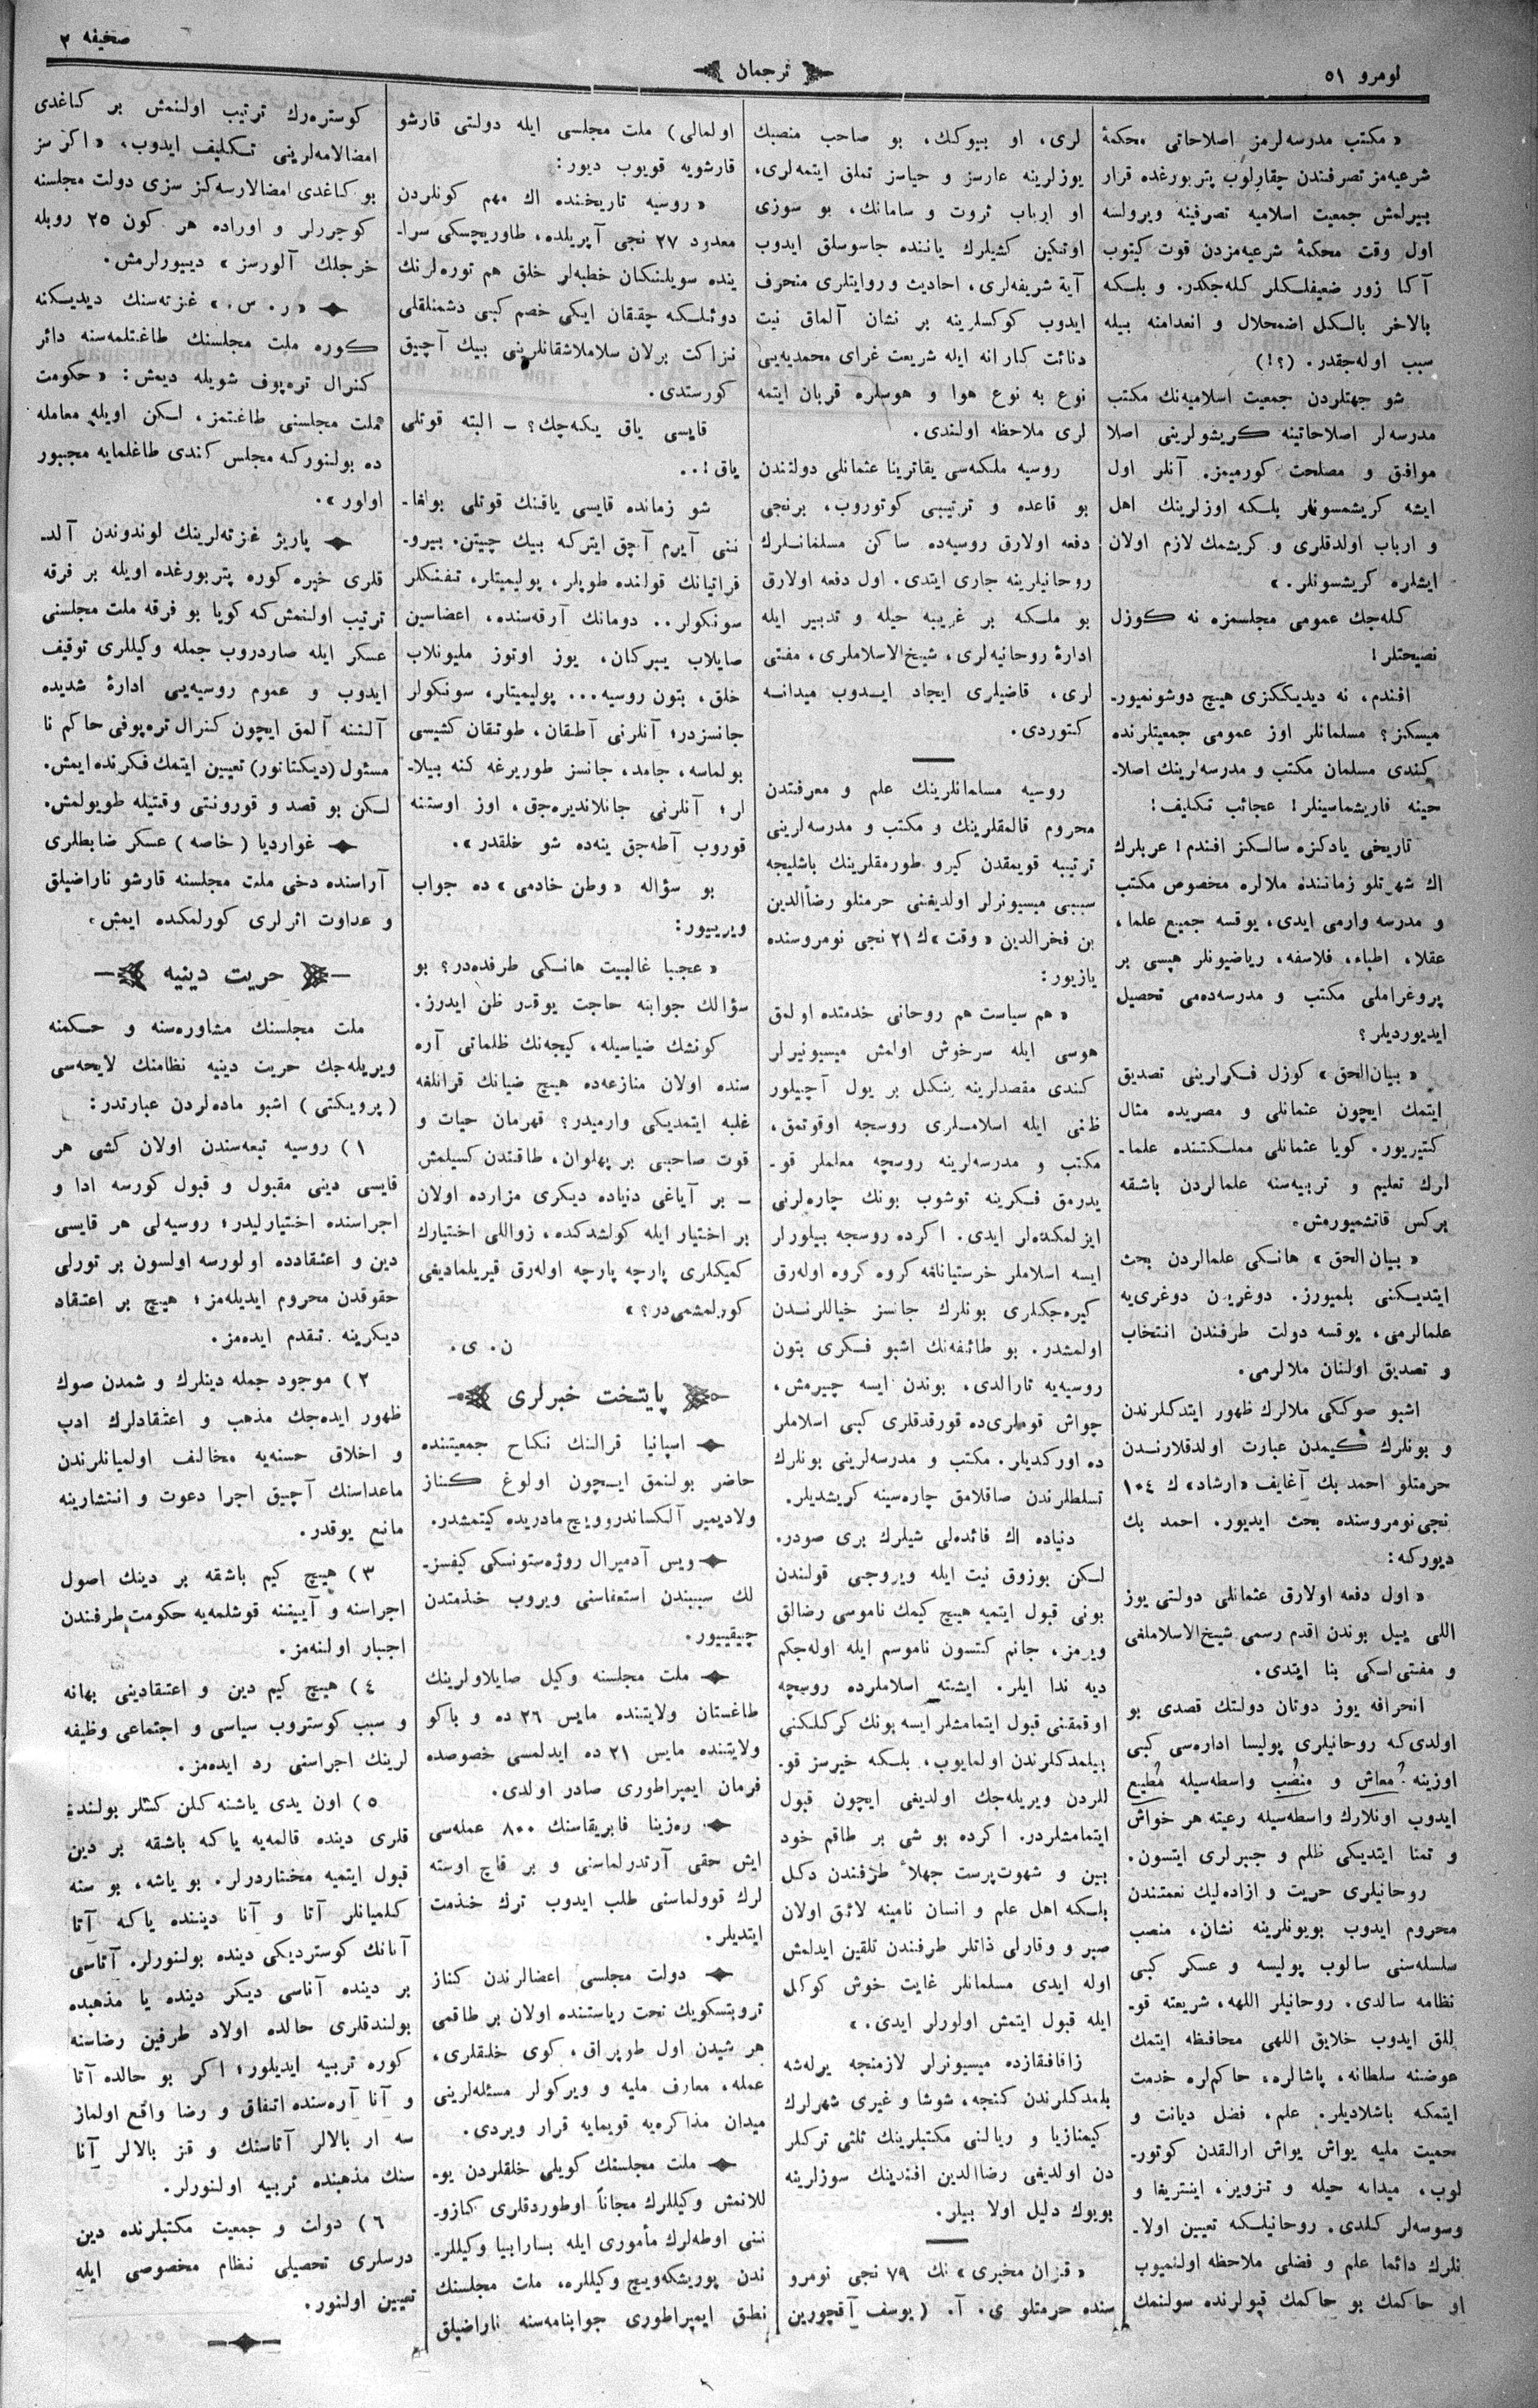 نومرو ٥١
ترجمان
صحيفه ٢
« مكتب مدرسه‌لرمز اصلاحاتى محكمۀ
شرعيه‌مز تصرفندن چقارلوب پتربورغده قرار
بيرلمش جمعيت اسلاميه تصرفينه ويرولسه
اول وقت محكمۀ شرعيه‌مزدن قوت كيتوب
آكا زور ضعيفلكلر كله‌جكدر. و بلكه
بالاخر بالكل اضمحلال و انعدامنه بيله
سبب اوله‌جقدر. (؟!)
شو جهتلردن جمعيت اسلاميه‌نك مكتب
مدرسه‌لر اصلاحاتينه كريشولرينى اصلا
موافق و مصلحت كورميمز. آنلر اول
ايشه كريشمسونلر بلكه اوزلرينك اهل
و ارباب اولدقلرى و كريشمك لازم اولان
ايشلره كريشسونلر. »
كله‌جك عمومى مجلسمزه نه كوزل
نصيحتلر!
افندم، نه ديديككزى هيچ دوشونميور-
ميسكز؟ مسلمانلر اوز عمومى جمعيتلرنده
كندى مسلمان مكتب و مدرسه‌لرينك اصلا-
حينه قاريشماسينلر! عجائب تكليف!
تاريخى يادكزه سالكز افندم! عربلرك
اك شهرتلو زماننده ملالره مخصوص مكتب
و مدرسه وارمى ايدى، يوقسه جميع علما،
عقلا، اطباء، فلاسفه، رياضيونلر هپسى بر
پروغراملى مكتب و مدرسه‌ده‌مى تحصيل
ايديورديلر؟
« بيان‌الحق » كوزل فكرلرينى تصديق
ايتمك ايچون عثمانلى و مصريده مثال
كتيريور. كويا عثمانلى مملكتنده علما-
لرك تعليم و تربيه‌سنه علمالردن باشقه
بركس قاتشميورمش.
« بيان الحق » هانكى علمالردن بحث
ايتديكنى بلميورز. دوغريدن دوغرى‌يه
علمالرمى، يوقسه دولت طرفندن انتخاب
و تصديق اولنان ملالرمى.
اشبو صوككى ملالرك ظهور ايتدكلرندن
و بونلرك كيمدن عبارت اولدقلارندن
حرمتلو احمد بك آغايف « ارشاد » ك ١٠٤
نجى نومروسنده بحث ايديور. احمد بك
ديوركه:
« اول دفعه اولارق عثمانلى دولتى يوز
اللى ييل بوندن اقدم رسمى شيخ‌الاسلاملغى
و مفتى‌لكى بنا ايتدى.
انحرافه يوز دوتان دولتك قصدى بو
اولدى‌كه روحانيلرى پوليسا اداره‌سى كبى
اوزينه معاش و منصب واسطه‌سيله مطيع
ايدوب اونلارك واسطه‌سيله رعيته هر خواش
و تمنا ايتديكى ظلم و جبرلرى ايتسون.
روحانيلرى حريت و ازاده‌ليك نعمتندن
محروم ايدوب بويونلرينه نشان، منصب
سلسله‌سنى سالوب پوليسه و عسكر كبى
نظامه سالدى. روحانيلر اللهه، شريعته قو-
للق ايدوب خلايق اللهى محافظه ايتمك
عوضنه سلطانه، پاشالره، حاكم‌لره خدمت
ايتمكه باشلاديلر. علم، فضل ديانت و
حميت مليه يواش يواش ارالقدن كوتور-
لوب، ميدانه حيله و تزوير، اينتريغا و
وسوسه‌لر كلدى. روحانيلكه تعيين اولا-
نلرك دائما علم و فضلى ملاحظه اولنميوب
او حاكمك بو حاكمك قپولرنده سولنمك
لرى، او بيوكك، بو صاحب منصبك
يوزلرينه عارسز و حياسز تملق ايتمه‌لرى،
او ارباب ثروت و سامانك، بو سوزى
اوتكين كشيلرك ياننده جاسوسلق ايدوب
آية شريفه‌لرى، احاديث و روايتلرى منحرف
ايدوب كوكسلرينه بر نشان آلماق نيت
دنائت كارانه ايله شريعت غراى محمديه‌يى
نوع به نوع هوا و هوسلره قربان ايتمه
لرى ملاحظه اولندى.
روسيه ملكه‌سى يقاترينا عثمانلى دولتندن
بو قاعده و ترتيبى كوتوروب، برنجى
دفعه اولارق روسيه‌ده ساكن مسلمانلرك
روحانيلرينه جارى ايتدى. اول دفعه اولارق
بو ملكه بر غريبه حيله و تدبير ايله
ادارۀ روحانيه‌لرى، شيخ‌الاسلاملرى، مفتى
لرى، قاضيلرى ايجاد ايدوب ميدانه
كتوردى.
روسيه مسلمانلرينك علم و معرفتدن
محروم قالمقلرينك و مكتب و مدرسه‌لرينى
ترتيبه قويمقدن كيرو طورمقلرينك باشليجه
سببى ميسيونرلر اولديغنى حرمتلو رضأالدين
بن فخرالدين « وقت » ك ٢١ نجى نومروسنده
يازيور:
« هم سياست هم روحانى خدمتده اولمق
هوسى ايله سرخوش اولمش ميسيونيرلر
كندى مقصدلرينه ينكل بر يول آچيلور
ظنى ايله اسلاملرى روسجه اوقوتمق،
مكتب و مدرسه‌لرينه روسچه معلملر قو-
يدرمق فكرينه توشوب بونك چاره‌لرنى
ايزلمكده‌لر ايدى. اكرده روسجه بيلورلر
ايسه اسلاملر خرستيانلغه كروه كروه اوله‌رق
كيره‌جكلرى بونلرك جانسز خياللرندن
اولمشدر. بو طائفه‌نك اشبو فكرى بتون
روسيه‌يه تارالدى، بوندن ايسه چيرمش،
چواش قوملرى‌ده قورقدقلرى كبى اسلاملر
ده اوركديلر. مكتب و مدرسه‌لرينى بونلرك
تسلطلرندن صاقلامق چاره‌سينه كريشديلر.
دنياده اك فائده‌لى شيلرك برى صودر.
لكن بوزوق نيت ايله ويروجى قولندن
بونى قبول ايتميه هيچ كيمك ناموسى رضالق
ويرمز، جانم كتسون ناموسم ايله اوله‌جكم
ديه ندا ايلر. ايشته اسلاملرده روسچه
اوقمقنى قبول ايتمامشلر ايسه بونك كركلكنى
بيلمدكلرندن اولمايوب، بلكه خيرسز قو-
للردن ويريله‌جك اولديغى ايچون قبول
ايتمامشلردر. اكرده بو شى بر طاقم خود
بين و شهوت‌پرست جهلأ طرفندن دكل
بلكه اهل علم و انسان نامينه لائق اولان
صبر و وقارلى ذاتلر طرفندن تلقين ايدلمش
اوله ايدى مسلمانلر غايت خوش كوكل
ايله قبول ايتمش اولورلر ايدى. »
زافافقازده ميسيونرلر لازمنجه يرله‌شه
بلمدكلرندن كنجه، شوشا و غيرى شهرلرك
كيمنازيا و ريالنى مكتبلرينك ثلثى تركلر
دن اولديغى رضاالدين افندينك سوزلرينه
بويوك دليل اولا بيلر.
« قزان مخبرى » نك ٧٩ نجى نومرو
سنده حرمتلو ى. آ. ( يوسف آقچورين
اولمالى) ملت مجلسى ايله دولتى قارشو
قارشويه قويوب ديور:
« روسيه تاريخنده اك مهم كونلردن
معدود ٢٧ نجى آپريلده، طاوريچسكى سرا-
ينده سويلنكان خطبه‌لر خلق هم توره‌لرنك
دوئلكه چققان ايكى خصم كبى دشمنلقلى
نزاكت برلان سلاملاشقانلرينى بيك آچيق
كورستدى.
قايسى ياق يكه‌چك؟ ـ البته قوتلى
ياق!..
شو زمانده قايسى ياقنك قوتلى بولغا-
ننى آيرم آچق ايتركه بيك چيتن. بيرو-
قراتيانك قولنده طوپلر، پوليميتلر، تفنكلر
سونكولر.. دومانك آرقه‌سنده، اعضاسين
صايلاب ييبركان، يوز اوتوز مليونلاب
خلق، بتون روسيه... پوليميتلر، سونكولر
جانسزدر؛ آنلرنى آطقان، طوتقان كشيسى
بولماسه، جامد، جانسز طوريرغه كنه بيلا-
لر؛ آنلرنى جانلانديره‌جق، اوز اوستنه
قوروب آطه‌جق ينه‌ده شو خلقدر ».
بو سؤاله « وطن خادمى » ده جواب
ويرييور:
« عجبا غالبيت هانكى طرفده‌در؟ بو
سؤالك جوابنه حاجت يوقدر ظن ايدرز.
كونشك ضياسيله، كيجه‌نك ظلماتى آره
سنده اولان منازعه‌ده هيچ ضيانك قرانلغه
غلبه ايتمديكى وارميدر؟ قهرمان حيات و
قوت صاحبى بر پهلوان، طاقتدن كسيلمش
ـ بر آياغى دنياده ديكرى مزارده اولان
بر اختيار ايله كولشدكده، زواللى اختيارك
كميكلرى پارچه پارچه اوله‌رق قيريلماديغى
كورلمشمى‌در؟ »
ن. ى.
پايتخت خبرلرى
اسپانيا قرالنك نكاح جمعيتنده
حاضر بولنمق ايچون اولوغ كناز
ولاديمير آلكساندروويچ مادريده كيتمشدر.
ويس آدميرال روژه‌ستونسكى كيفسز-
لك سببندن استعفاسنى ويروب خدمتدن
چيقييور.
ملت مجلسنه وكيل صايلاولرينك
طاغستان ولايتنده مايس ٢٦ ده و باكو
ولايتنده مايس ٢١ ده ايدلمسى خصوصده
فرمان ايمپراطورى صادر اولدى.
ره‌زينا فابريقاسنك ٨٠٠ عمله‌سى
ايش حقى آرتدرلماسنى و بر قاچ اوسته
لرك قوولماسنى طلب ايدوب ترك خدمت
ايتديلر.
دولت مجلسى اعضالرندن كناز
تروبتسكويك تحت رياستنده اولان بر طاقمى
هر شيدن اول طوپراق، كوى خلقلرى،
عمله، معارف مليه و ويركولر مسئله‌لرينى
ميدان مذاكره‌يه قويمايه قرار ويردى.
ملت مجلسنك كويلى خلقلردن يو-
للانمش وكيللرك مجاناً اوطوردقلرى كازو-
ننى اوطه‌لرك مأمورى ايله بسارابيا وكيللر-
ندن پوريشكه‌ويچ وكيللره، ملت مجلسنك
نطق ايمپراطورى جوابنامه‌سنه ناراضيلق
كوستره‌رك ترتيب اولنمش بر كاغدى
امضالامه‌لرينى تكليف ايدوب، « اكر سز
بو كاغدى امضالارسه‌كز سزى دولت مجلسنه
كوجررلر و اوراده هر كون ٢٥ روبله
خرجلك آلورسز » ديييورلرمش.
« ر. س. » غزته‌سنك ديديكنه
كوره ملت مجلسنك طاغتلمه‌سنه دائر
كنرال تره‌پوف شويله ديمش: « حكومت
ملت مجلسنى طاغتمز، لكن اويله معامله
ده بولنوركه مجلس كندى طاغلمايه مجبور
اولور ».
پاريژ غزته‌لرينك لوندوندن آلد-
قلرى خبره كوره پتربورغده اويله بر فرقه
ترتيب اولنمش‌كه كويا بو فرقه ملت مجلسنى
عسكر ايله صاردروب جمله وكيللرى توقيف
ايدوب و عموم روسيه‌يى ادارۀ شديده
آلتنه آلمق ايچون كنرال تره‌پوفى حاكم نا
مسئول (ديكتاتور) تعيين ايتمك فكرنده‌ايمش.
لكن بو قصد و قورونتى وقتيله طويولمش.
غوارديا ( خاصه ) عسكر ضابطلرى
آراسنده دخى ملت مجلسنه قارشو ناراضيلق
و عداوت اثرلرى كورلمكده ايمش.
حريت دينيه
ملت مجلسنك مشاوره‌سنه و حكمنه
ويريله‌جك حريت دينيه نظامنك لايحه‌سى
( پرويكتى ) اشبو ماده‌لردن عبارتدر:
١) روسيه تبعه‌سندن اولان كشى هر
قايسى دينى مقبول و قبول كورسه ادا و
اجراسنده اختيارليدر؛ روسيه‌لى هر قايسى
دين و اعتقادده اولورسه اولسون بر تورلى
حقوقدن محروم ايديله‌مز؛ هيچ بر اعتقاد
ديكرينه تقدم ايده‌مز.
٢) موجود جمله دينلرك و شمدن صوك
ظهور ايده‌جك مذهب و اعتقادلرك ادب
و اخلاق حسنه‌يه مخالف اولميانلرندن
ماعداسنك آچيق اجرا دعوت و انتشارينه
مانع يوقدر.
٣) هيچ كيم باشقه بر دينك اصول
اجراسنه و آييننه قوشلمه‌يه حكومت طرفندن
اجبار اولنه‌مز.
٤) هيچ كيم دين و اعتقادينى بهانه
و سبب كوستروب سياسى و اجتماعى وظيفه
لرينك اجراسنى رد ايده‌مز.
٥) اون يدى ياشنه كلن كشلر بولندۀ
قلرى دينده قالمه‌يه ياكه باشقه بر دين
قبول ايتميه مختاردرلر. بو ياشه، بو سنه
كلميانلر آتا و آنا ديننده ياكه آتا
آنانك كوسترديكى دينده بولنورلر. آتاسى
بر دينده آناسى ديكر دينده يا مذهبده
بولندقلرى حالده اولاد طرفين رضاسنه
كوره تربيه ايديلور؛ اكر بو حالده آتا
و آنا آره‌سنده اتفاق و رضا واقع اولماز
سه ار بالالر آتاسنك و قز بالالر آنا
سنك مذهبنده تربيه اولنورلر.
٦) دولت و جمعيت مكتبلرنده دين
درسلرى تحصيلى نظام مخصوصى ايله
تعيين اولنور.